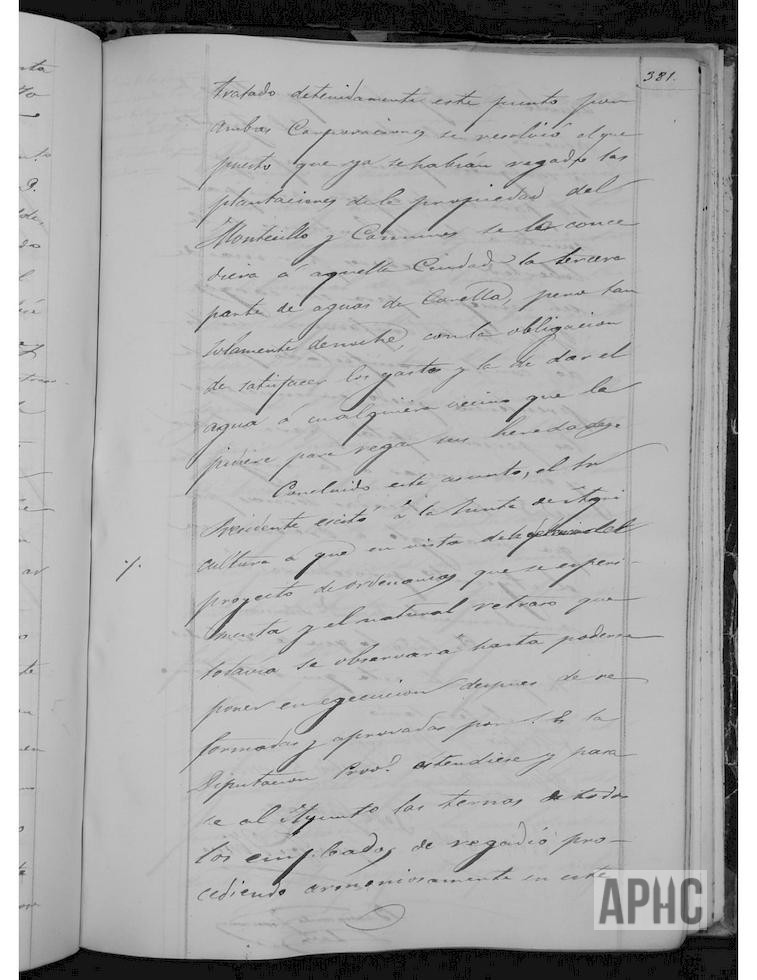 381.
tratado detenidamente este punto por
ambas Corporaciones se resolvió el que
puesto que ya se habian regado las
plantaciones de la propiedad del
Montecillo y Comunes se le conce
diera á aquella Ciudad la tercera
parte de aguas de Corella, pero tan
solamente denoche, con la obligacion
de satisfacer los gastos y la de dar el
agua á cualquiera vecino que la
pidiese para regar sus heredades
Concluido este asunto, el Sr
Presidente escitó á la Junta de Agri
cultura á que en vista del
proyecto de ordenanzas que se esperi-
menta y el natural retraso que
todavia se observará hasta poderse
poner en egecucion despues de re
formadas y aprovadas por S. E. la
Diputacion Prov.l estendiese y para
se al Ayunto las ternas de todos
los empleados de regadio pro-
cediendo armoniosamente en este
APHC